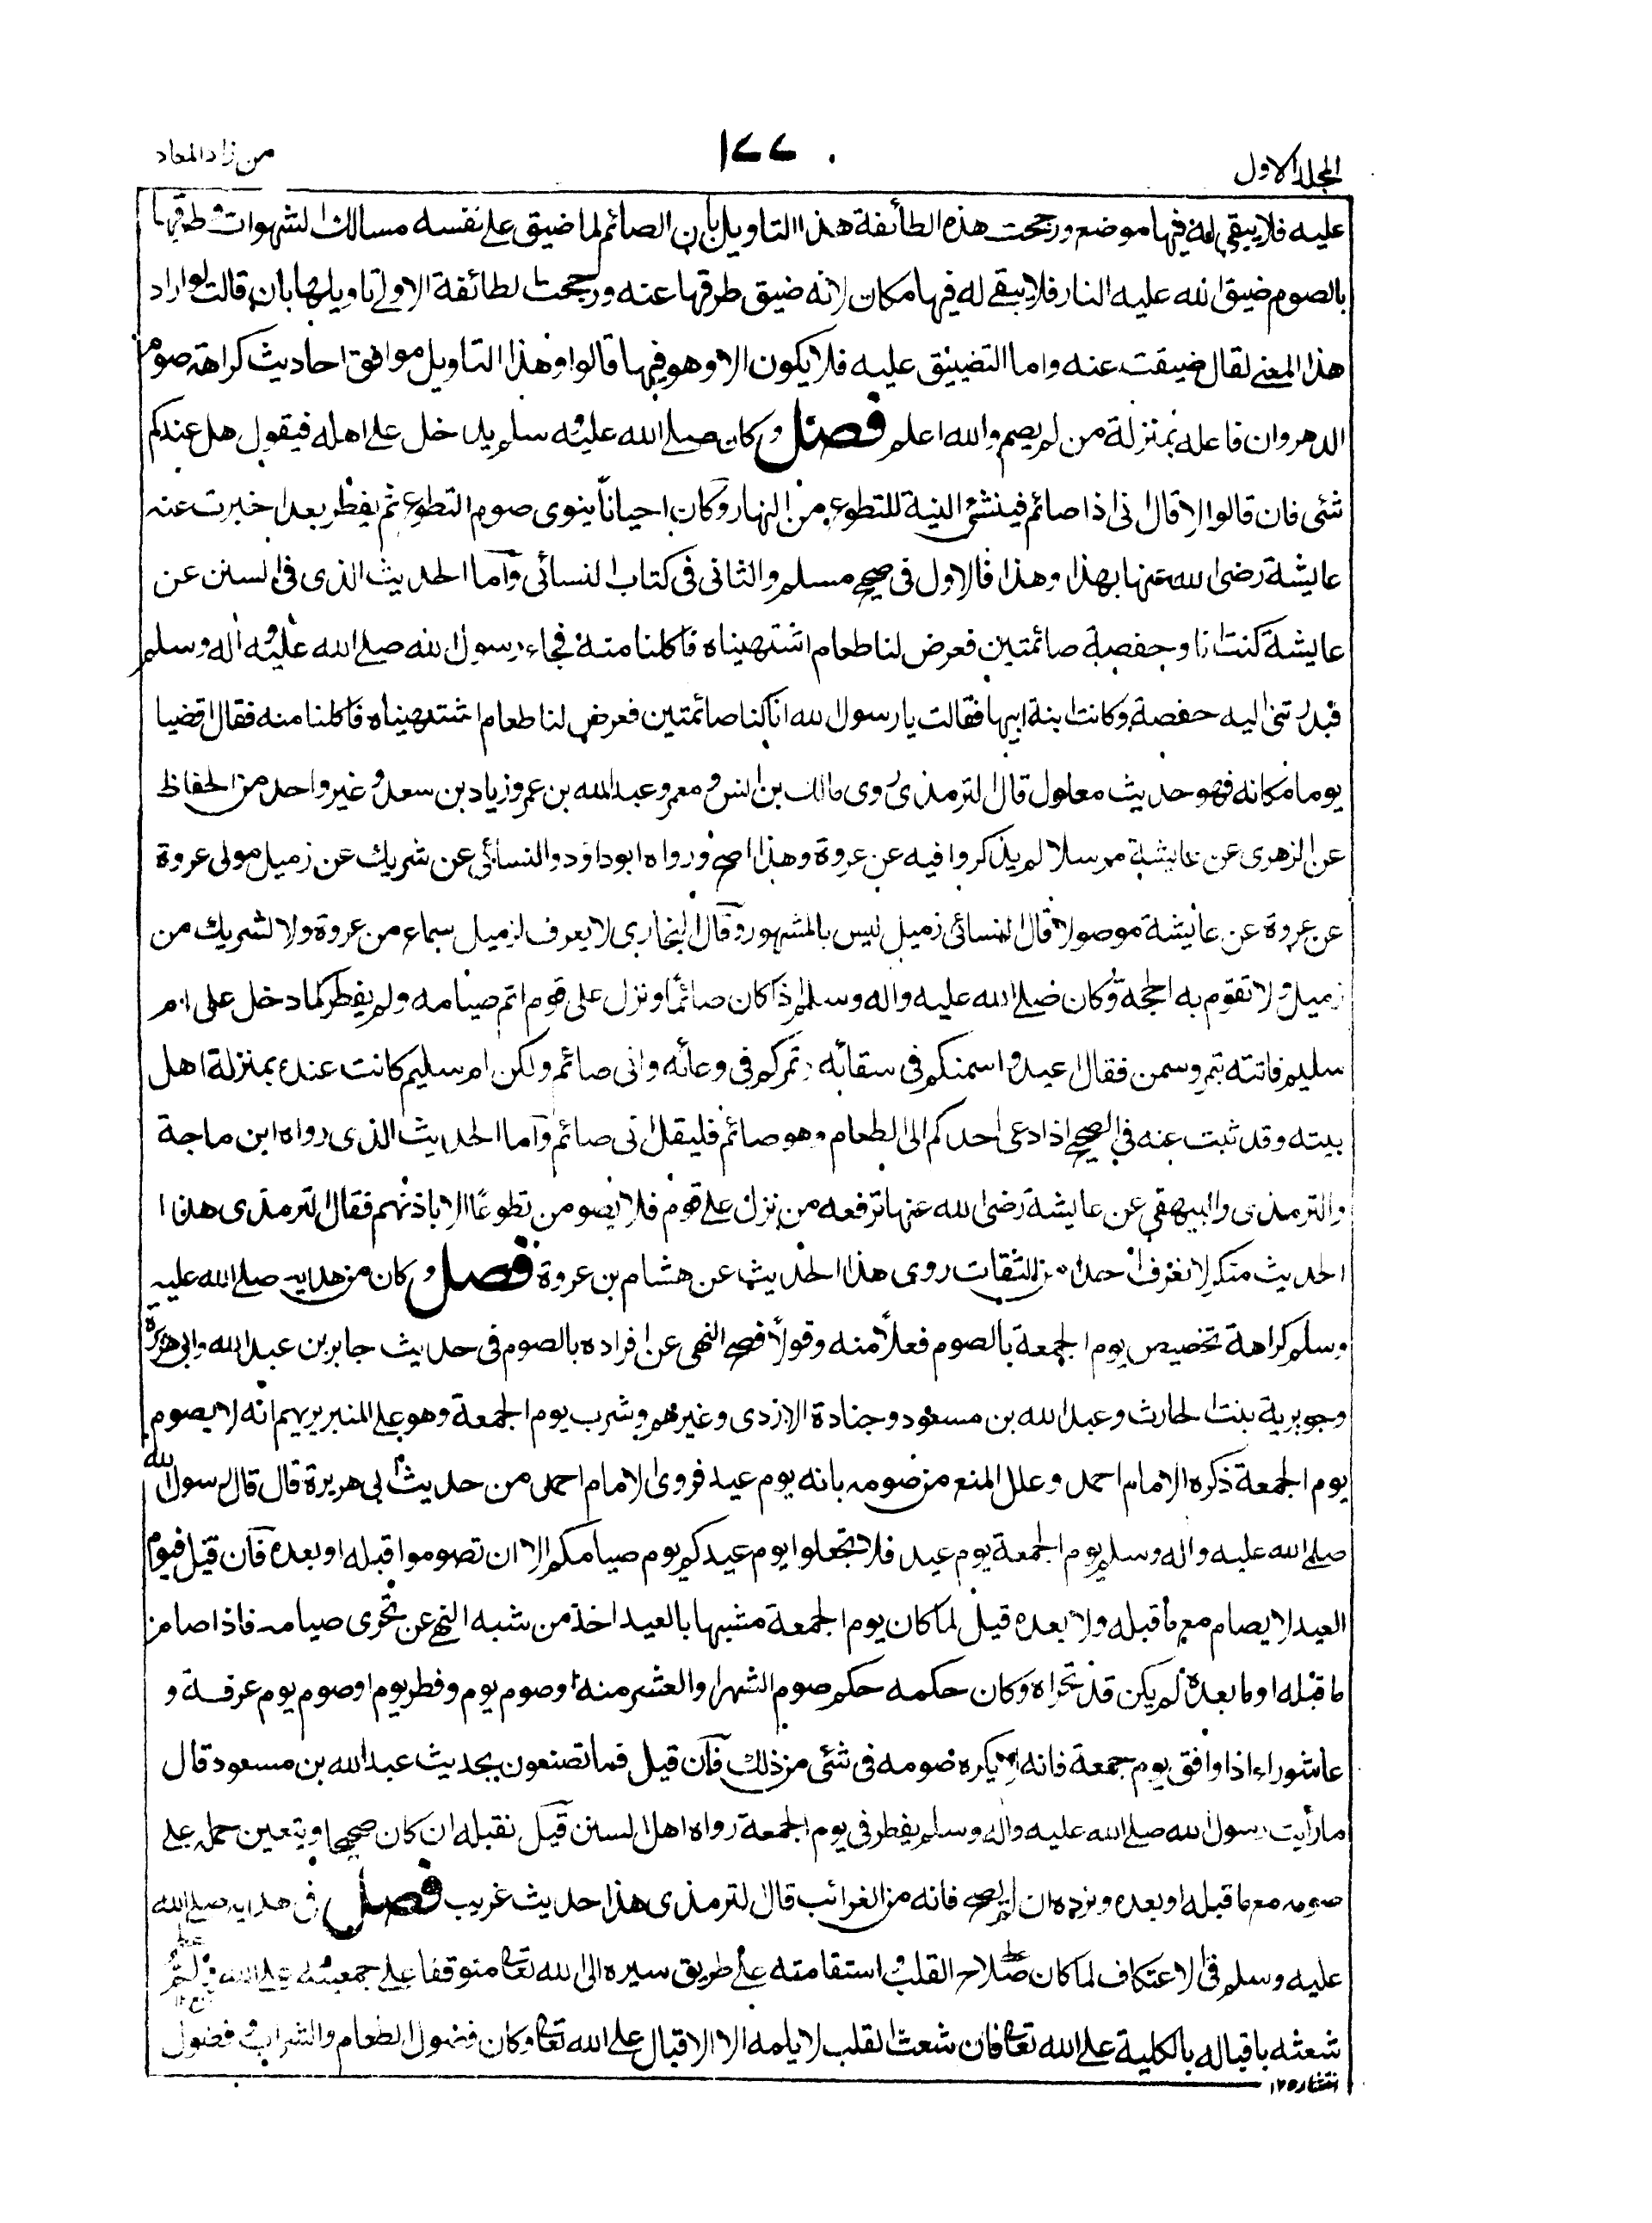 المجلد الاول
١٧٧
من زاد المعاد
عليه فلا يبقى له فيها موضع ورجحت هذه الطائفة هذا التاويل بان الصائم لما ضيق على نفسه مسالك الشهوات وطرقها
بالصوم ضيق الله عليه النار فلا يبقى له فيها مكان لانه ضيق طرقها عنه ورجحت الطائفة الاولى تاويلها بان قالت لو اراد
هذا المعنى لقال ضيقت عنه واما التضييق عليه فلا يكون الا وهو فيها قالوا وهذا التاويل موافق احاديث كراهة صوم
الدهر وان فاعله بمنزلة من لم يصم والله اعلم فصل وكان صلى الله عليه وسلم يدخل على اهله فيقول هل عندكم
شئى فان قالوا لا قال انى اذا صائم فينشئ النية للتطوع من النهار وكان احيانًا ينوى صوم التطوع ثم يفطر بعد اخبرت عنه
عايشة رضى الله عنها بهذا وهذا فالاول فى صحيح مسلم والثانى فى كتاب النسائى وآما الحديث الذى فى السنن عن
عايشة كنت انا وحفصة صائمتين فعرض لنا طعام اشتهيناه فاكلنا منه فجاء رسول الله صلى الله عليه واله وسلم
فبدرتنى اليه حفصة وكانت ابنة ابيها فقالت يا رسول الله انا كنا صائمتين فعرض لنا طعام اشتهيناه فاكلنا منه فقال اقضيا
يوما مكانه فهو حديث معلول قال الترمذى روى مالك بن انس ومعمر وعبد الله بن عمر وزياد بن سعد وغير واحد من الحفاظ
عن الزهرى عن عايشة مرسلا لم يذكروا فيه عن عروة وهذا اصح ورواه ابوداؤد والنسائى عن شريك عن زميل مولى عروة
عن عروة عن عائشة موصولا قال النسائى زميل ليس بالمشهور وقال البخارى لا يعرف لزميل سماع من عروة ولا لشريك من
زميل ولا تقوم به الحجة وكان صلى الله عليه واله وسلم اذا كان صائمًا ونزل على قوم اتم صيامه ولم يفطر كما دخل على ام
سليم فاتته بتمر وسمن فقال اعيدوا سمنكم فى سقائه وتمركم فى وعائه وانى صائم ولكن ام سليم كانت عنده بمنزلة اهل
بيته وقد ثبت عنه فى الصحيح اذا دعى احدكم الى الطعام وهو صائم فليقل انى صائم وآما الحديث الذى رواه ابن ماجة
والترمذى والبيهقى عن عايشة رضى الله عنها ترفعه من نزل على قوم فلا يصومن تطوعًا الا باذنهم فقال الترمذى هذا
الحديث منكر لا نعرف احدا من الثقات روى هذا الحديث عن هشام بن عروة فصل وكان من هديه صلى الله عليه
وسلم كراهة تخصيص يوم الجمعة بالصوم فعلًا منه وقولًا فصح النهى عن افراده بالصوم فى حديث جابر بن عبد الله وابى هريرة
وجويرية بنت الحارث وعبد الله بن مسعود وجنادة الازدى وغيرهم وشرب يوم الجمعة وهو على المنبر يريهم انه لا يصوم
يوم الجمعة ذكره الامام احمد وعلل المنع من صومه بانه يوم عيد فروى الامام احمد من حديث ابى هريرة قال قال رسول الله
صلى الله عليه واله وسلم يوم الجمعة يوم عيد فلا تجعلوا يوم عيدكم يوم صيامكم الا ان تصوموا قبله او بعده فآن قيل فيوم
العيد لا يصام مع ما قبله ولا بعده قيل لما كان يوم الجمعة مشبها بالعيد اخذ من شبه النهى عن تحرى صيامه فاذا صام من
ما قبله او ما بعده لم يكن قد تحراه وكان حكمه حكم صوم الشهر او العشر منه او صوم يوم وفطر يوم او صوم يوم عرفة و
عاشوراء اذا وافق يوم جمعة فانه لا يكره صومه فى شئى من ذلك فآن قيل فما تصنعون بحديث عبد الله بن مسعود قال
ما رأيت رسول الله صلى الله عليه واله وسلم يفطر فى يوم الجمعة رواه اهل السنن قيل نقبله ان كان صحيحا ويتعين حمله على
صومه مع ما قبله او بعده ونرده ان لم يصح فانه من الغرائب قال الترمذى هذا حديث غريب فصل فى هديه صلى الله
عليه وسلم فى الاعتكاف لما كان صلاح القلب واستقامته على طريق سيره الى الله تعالى متوقفا على جمعيته على الله ولم
شعثه باقباله بالكلية على الله تعالى فان شعث القلب لا يلمه الا الاقبال على الله تعالى وكان فضول الطعام والشراب وفضول
انتشاره ١٢